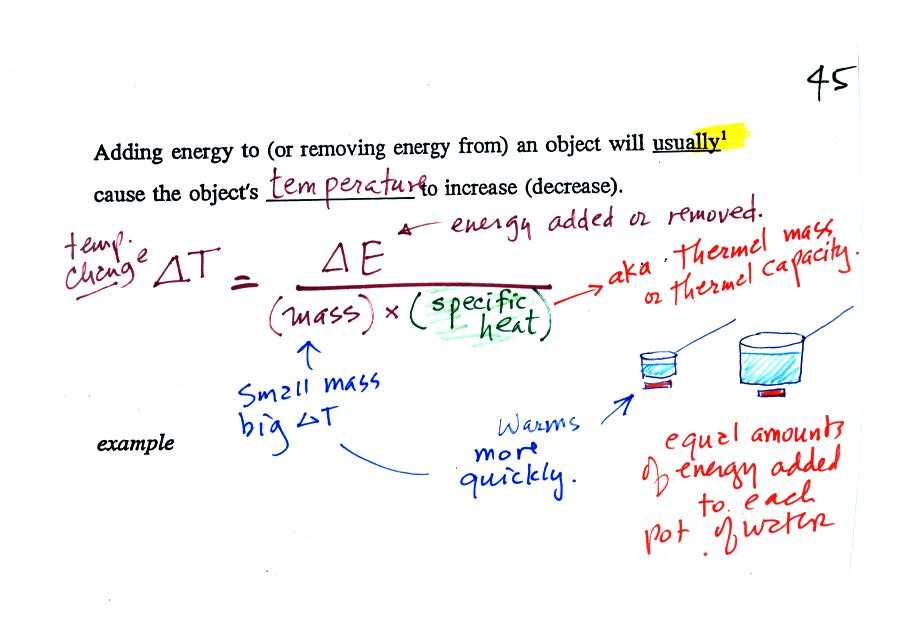 45
Adding energy to (or removing energy from) an object will usually¹
cause the object's temperature to increase (decrease).
temp.
change
ΔT = ΔE / (mass) × (specific heat)
← energy added or removed.
→ aka. thermal mass
or thermal capacity.
↑
Small mass
big ΔT
example
Warms
more
quickly.
equal amounts
of energy added
to each
pot of water